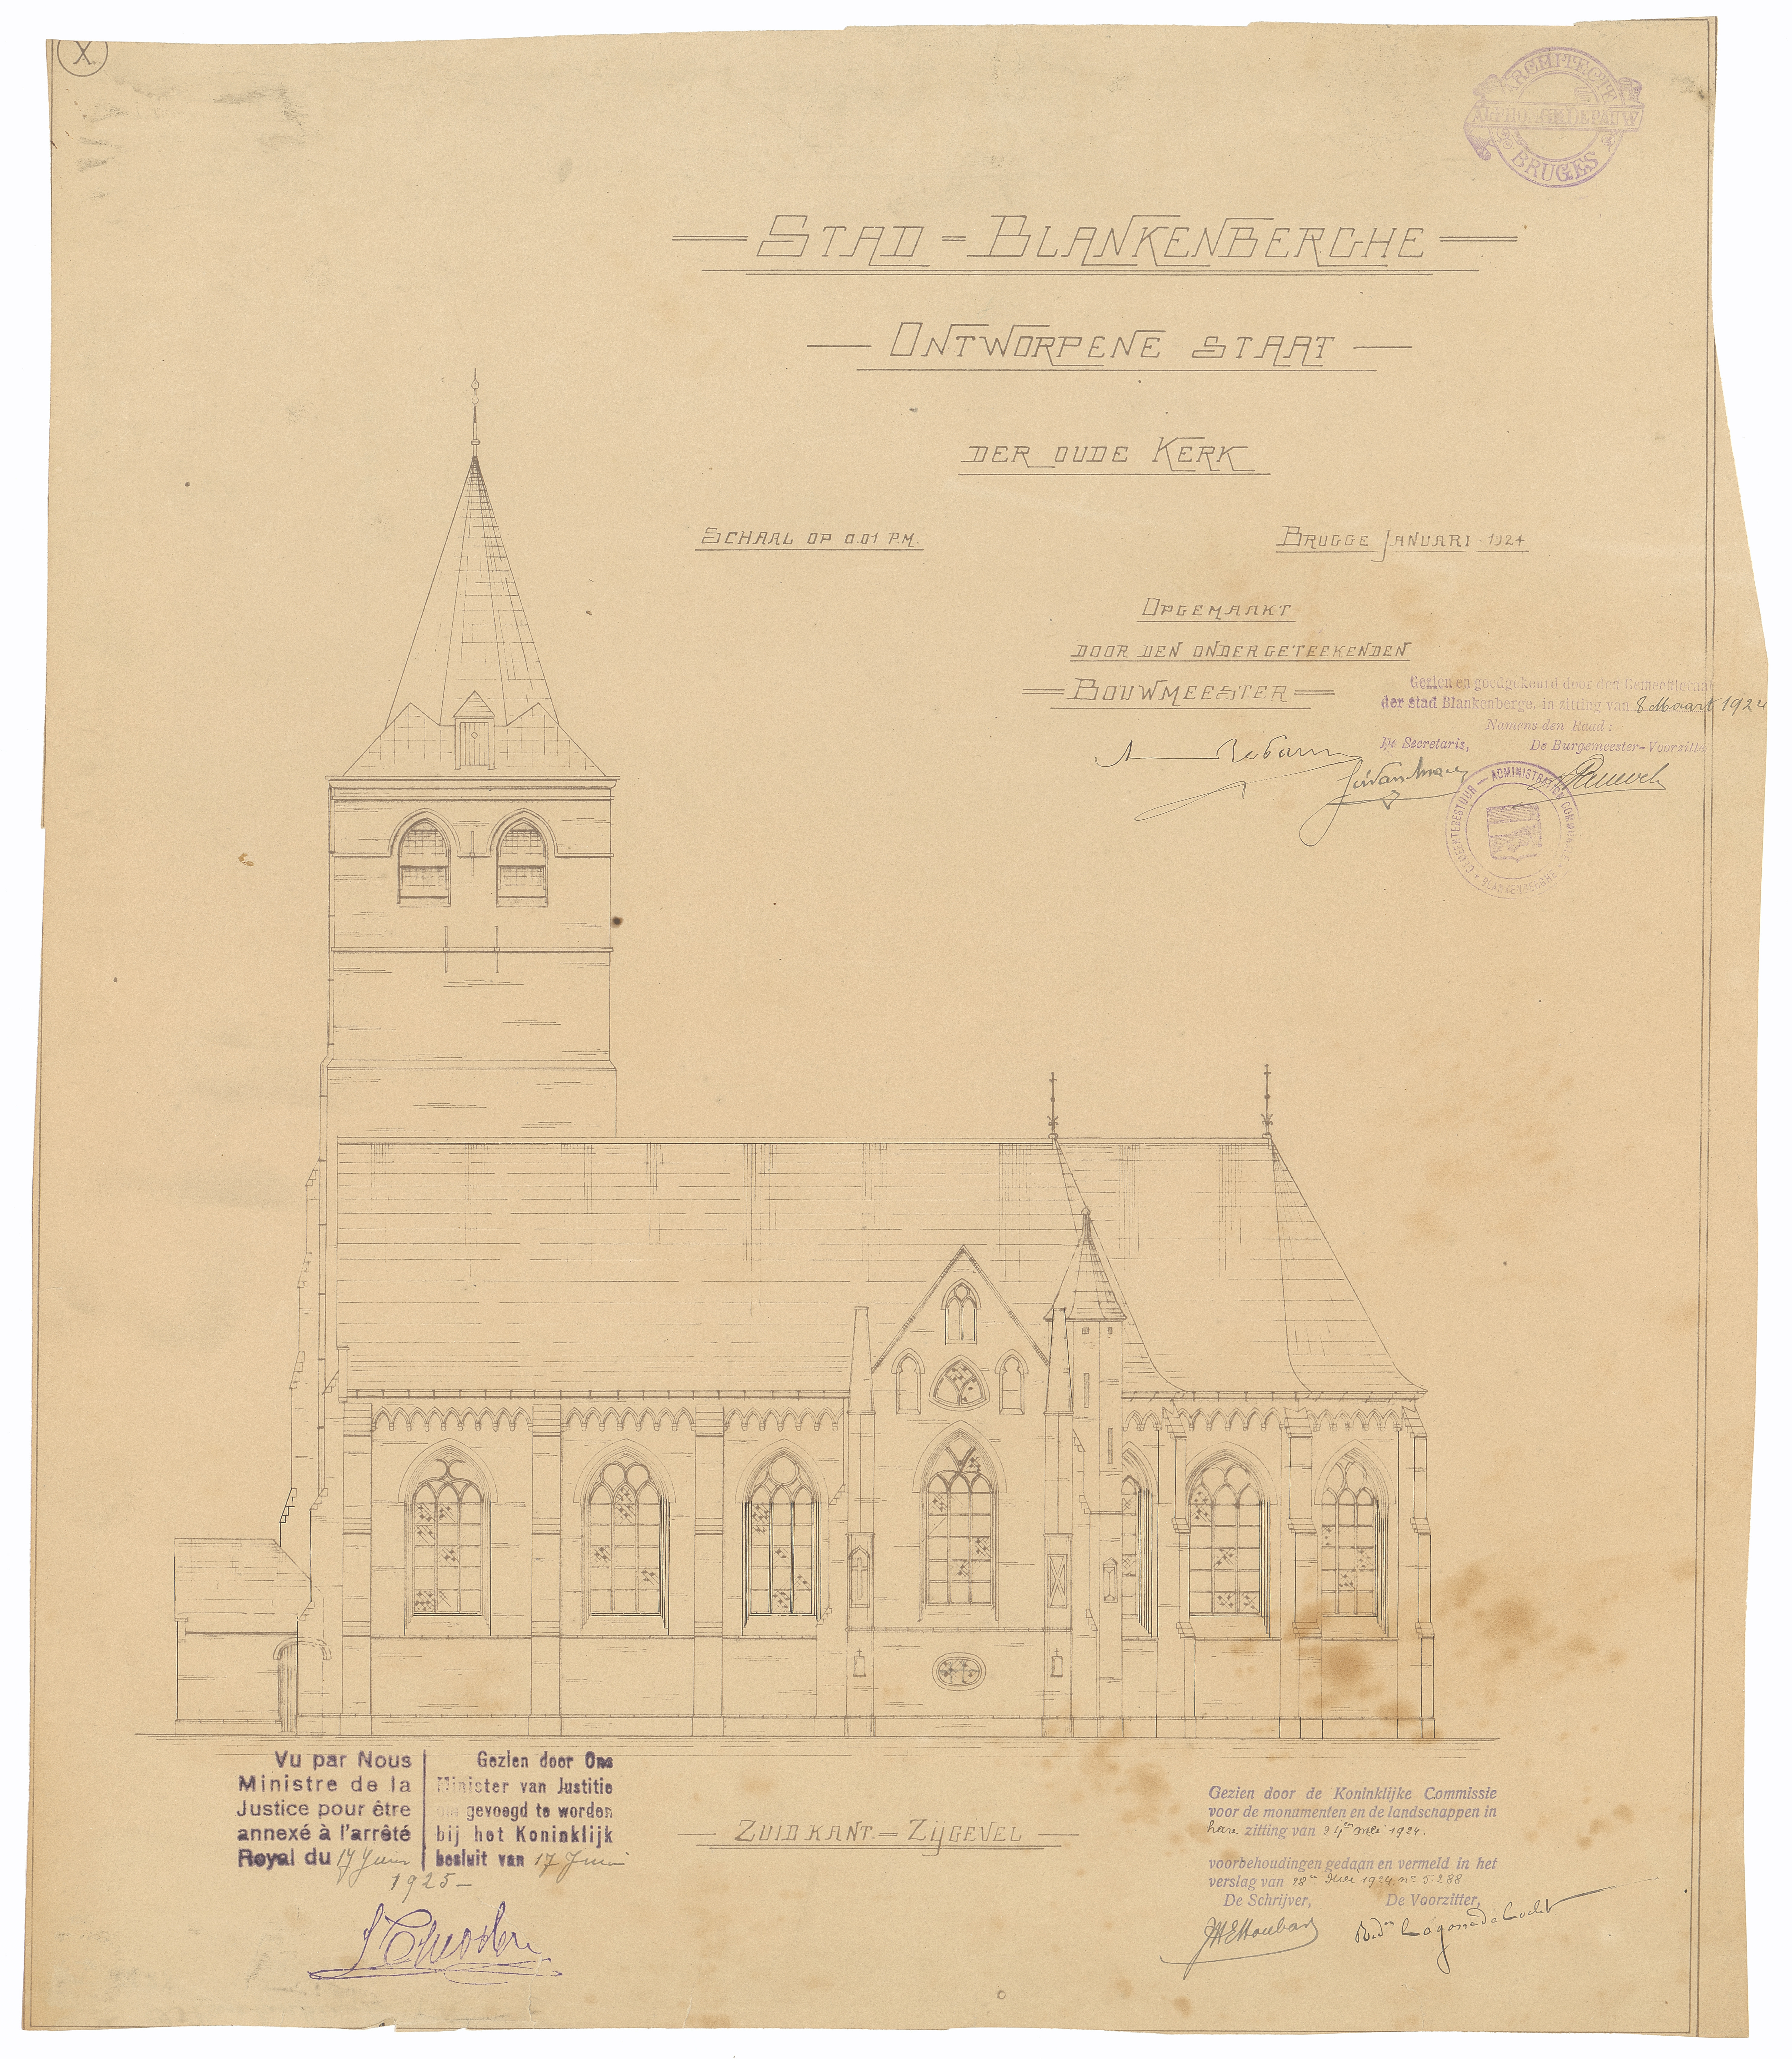 X
ARCHITECTE
ALPHONSE DEPAUW
BRUGES
STAD = BLANKENBERGHE
ONTWORPENE STAAT
DER OUDE KERK
SCHAAL OP 0.01 P.M.
BRUGGE JANUARI - 1924
OPGEMAAKT
DOOR DEN ONDERGETEEKENDEN
BOUWMEESTER
Gezien en goedgekeurd door den Gemeenteraad
der stad Blankenberge, in zitting van 8 Maart 1924
Namens den Raad :
De Secretaris, De Burgemeester-Voorzitter
GEMEENTEBESTUUR — ADMINISTRATION COMMUNALE
* BLANKENBERGHE *
Vu par Nous
Ministre de la
Justice pour être
annexé à l'arrêté
Royal du 17 Juin
1925 -
Gezien door Ons
Minister van Justitie
om gevoegd te worden
bij het Koninklijk
besluit van 17 Juni
ZUID KANT. = ZIJGEVEL
Gezien door de Koninklijke Commissie
voor de monumenten en de landschappen in
hare zitting van 24en Mei 1924.
voorbehoudingen gedaan en vermeld in het
verslag van 28en Mei 1924 no 5.288
De Schrijver, De Voorzitter,